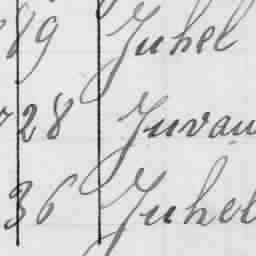 89 Juhel
728 Juvau
36 Juhel